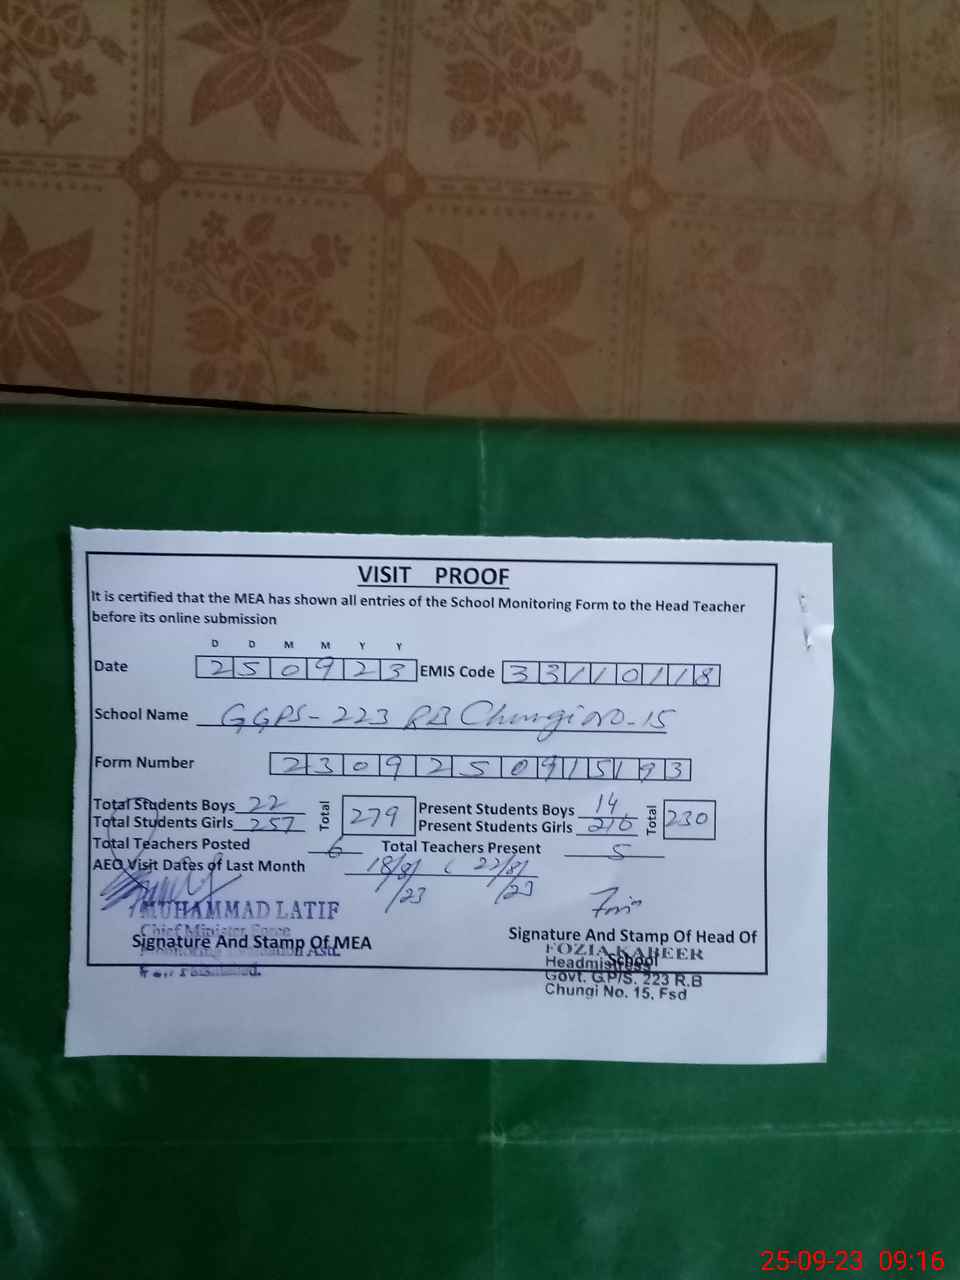 VISIT PROOF
It is certified that the MEA has shown all entries of the School Monitoring Form to the Head Teacher
before its online submission
D D M M Y Y
Date 250923 EMIS Code 33110118
School Name GGPS-223 RB Chungi No-15
Form Number 230925091593
Total Students Boys 22 Total 279 Present Students Boys 14 Total 230
Total Students Girls 257 Present Students Girls 216
Total Teachers Posted 6 Total Teachers Present 5
AEO Visit Dates of Last Month 18/8/23 22/8/23
MUHAMMAD LATIF
Chief Minister Force
Signature And Stamp Of MEA
Signature And Stamp Of Head Of
School
FOZIA KABEER
Headmistress
Govt. G.P/S. 223 R.B
Chungi No. 15, Fsd
25-09-23 09:16